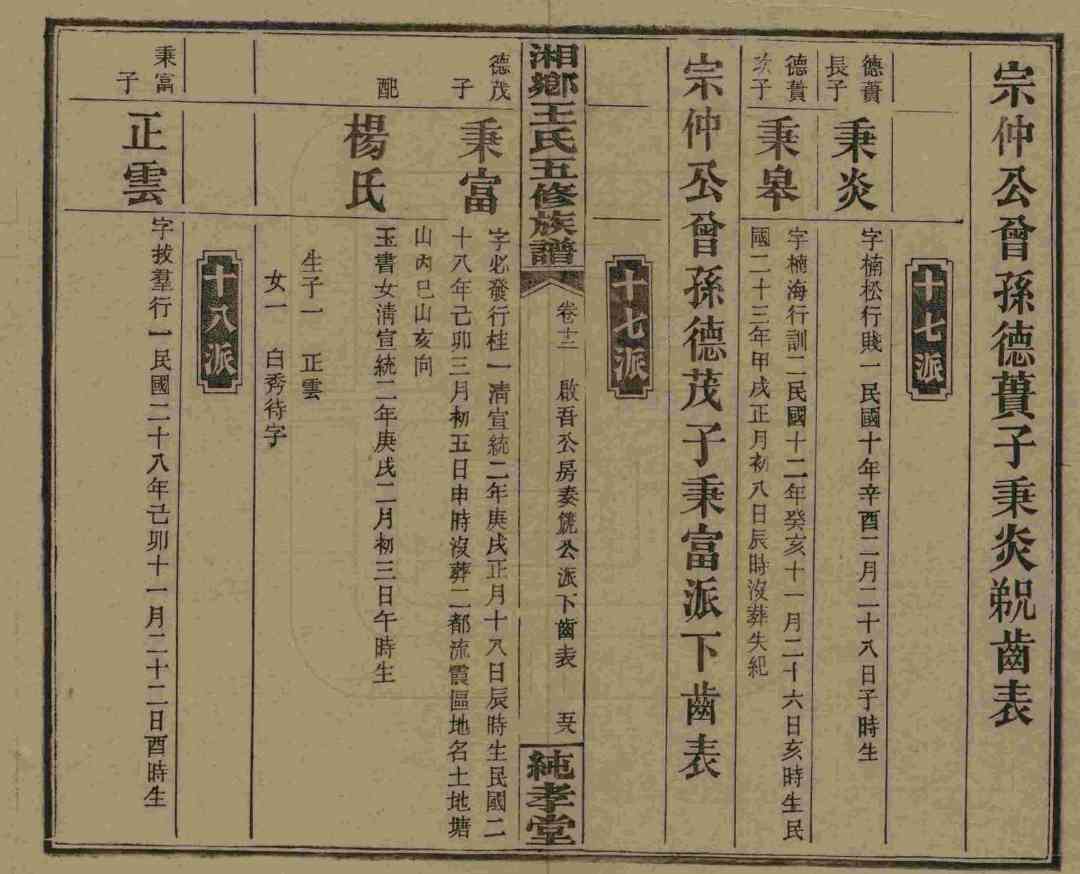 宗仲公曾孫德蕡子秉炎覢齒表
十七派
德蕡長子
秉炎
字楠松行賤一民國十年辛酉二月二十八日子時生
德蕡次子
秉皋
字楠海行訓二民國十二年癸亥十一月二十六日亥時生民
國二十三年甲戌正月初八日辰時沒葬失紀
宗仲公曾孫德茂子秉富派下齒表
十七派
湘鄉王氏五修族譜
卷十二
啟吾公房委饒公派下齒表
五八
純孝堂
德茂子
秉富
字必發行桂一清宣統二年庚戌正月十八日辰時生民國二
十八年己卯三月初五日申時沒葬二都流霞區地名土地塘
山內巳山亥向
配
楊氏
玉書女清宣統二年庚戌二月初三日午時生
生子一 正雲
女一 白秀待字
十八派
秉富子
正雲
字拔羣行一民國二十八年己卯十一月二十二日酉時生